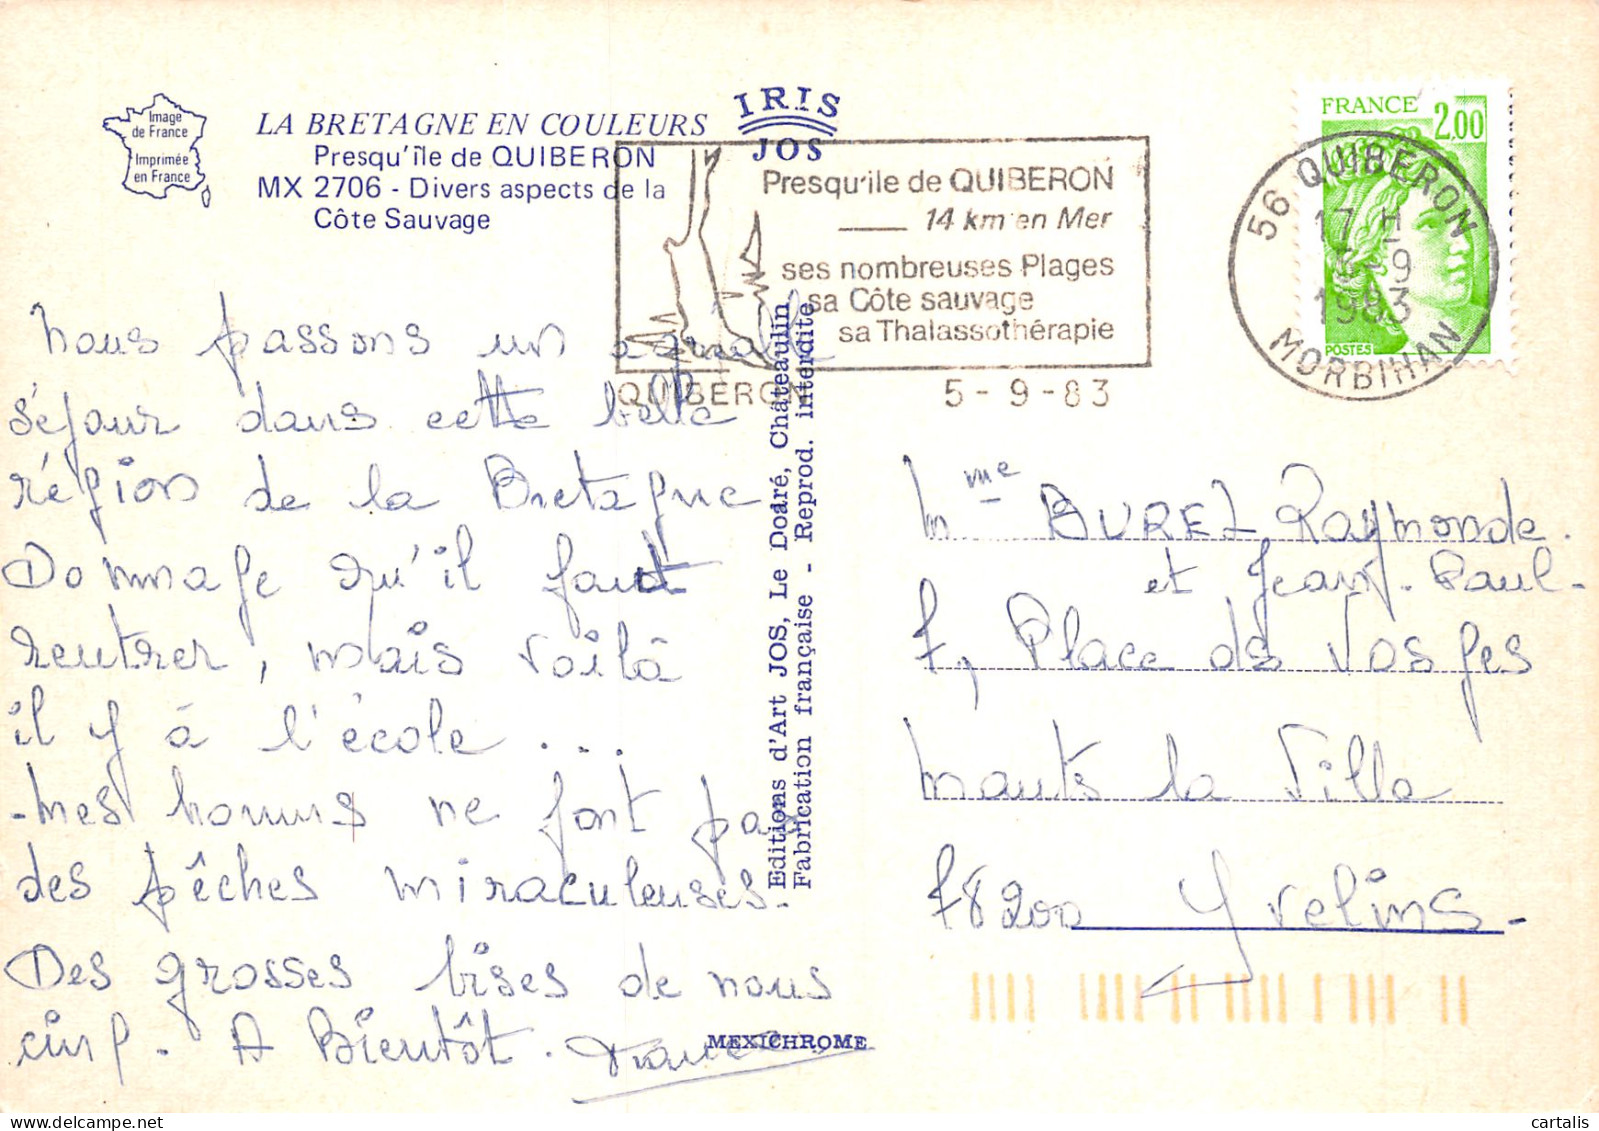 Image
de France
Imprimée
en France
LA BRETAGNE EN COULEURS
Presqu'île de QUIBERON
MX 2706 - Divers aspects de la
Côte Sauvage
IRIS
JOS
Presqu'ile de QUIBERON
14 km en Mer
ses nombreuses Plages
sa Côte sauvage
sa Thalassothérapie
QUIBERON
5-9-83
FRANCE 2,00
POSTES
56 QUIBERON
17 H
5-9
1983
MORBIHAN
Nous passons un agréable
séjour dans cette belle
région de la Bretagne
Dommage qu'il faut
rentrer, mais voilà
il y à l'école ...
-mes hommes ne font pas
des pêches miraculeuses-
Des grosses bises de nous
cinq. A Bientôt.
Editions d'Art JOS, Le Doaré, Châteaulin
Fabrication française - Reprod. interdite
MEXICHROME
Mme BUREL Raymonde.
et Jean-Paul-
7, Place des Vosges
Mants la Ville
78200 Yvelins-
cartalis